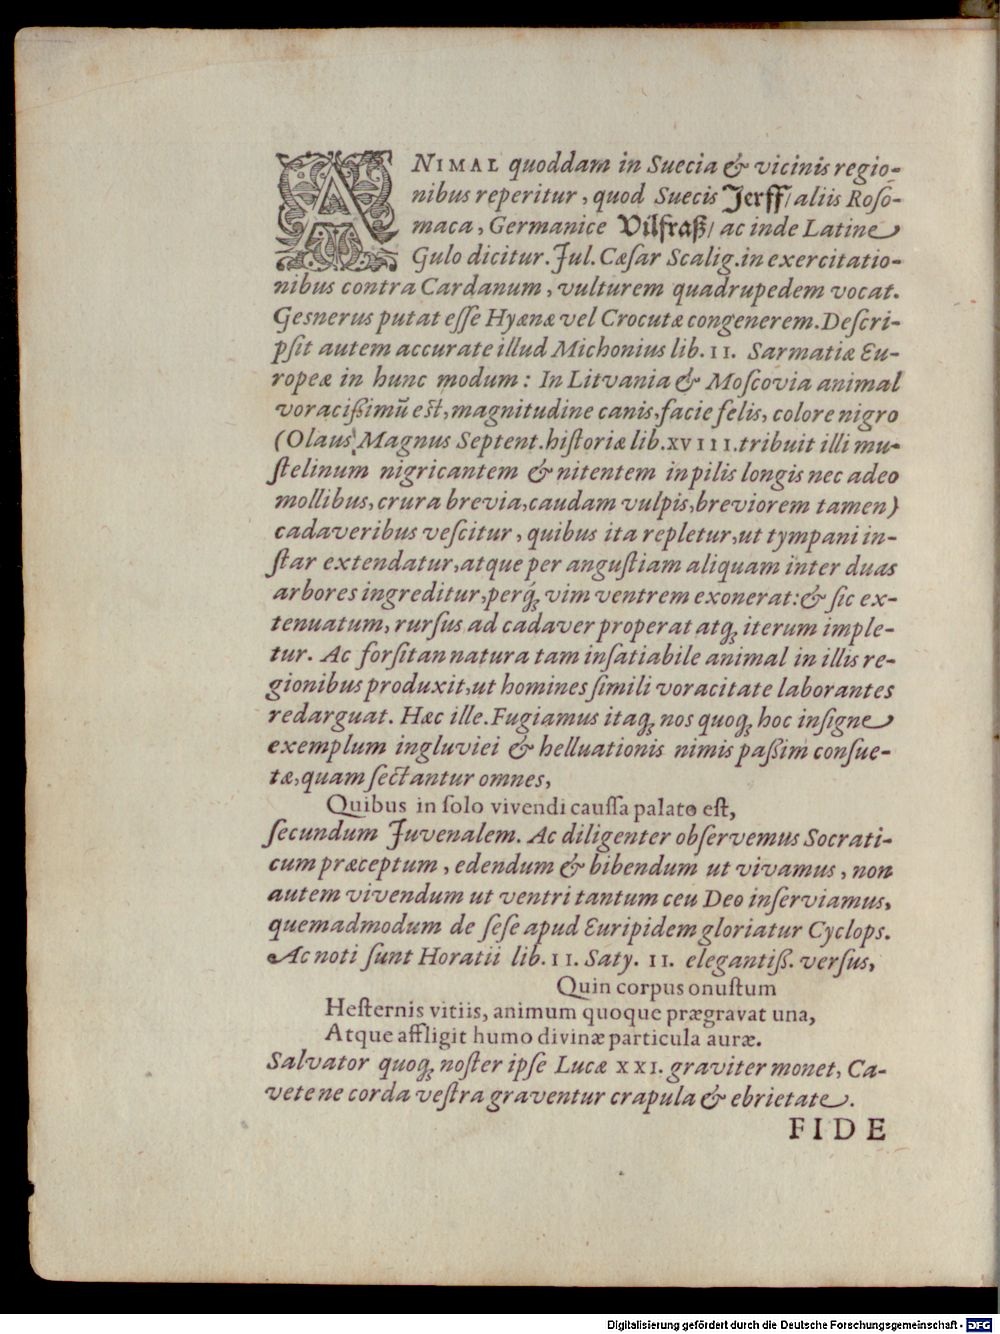 ANIMAL quoddam in Suecia & vicinis regio-
nibus reperitur, quod Suecis Jerff/ aliis Roſo-
maca, Germanice Vilfraß/ ac inde Latine
Gulo dicitur. Jul. Cæſar Scalig. in exercitatio-
nibus contra Cardanum, vulturem quadrupedem vocat.
Geſnerus putat eſſe Hyænæ vel Crocutæ congenerem. Deſcri-
pſit autem accurate illud Michonius lib. II. Sarmatiæ Eu-
ropeæ in hunc modum: In Litvania & Moſcovia animal
voracißimũ eſt, magnitudine canis, facie felis, colore nigro
(Olaus Magnus Septent. hiſtoriæ lib. XVIII. tribuit illi mu-
ſtelinum nigricantem & nitentem in pilis longis nec adeo
mollibus, crura brevia, caudam vulpis, breviorem tamen)
cadaveribus veſcitur, quibus ita repletur, ut tympani in-
ſtar extendatur, atque per anguſtiam aliquam inter duas
arbores ingreditur, perq́; vim ventrem exonerat: & ſic ex-
tenuatum, rurſus ad cadaver properat atq; iterum imple-
tur. Ac forſitan natura tam inſatiabile animal in illis re-
gionibus produxit, ut homines ſimili voracitate laborantes
redarguat. Hæc ille. Fugiamus itaq; nos quoq; hoc inſigne
exemplum ingluviei & helluationis nimis paßim conſue-
tæ, quam ſectantur omnes,
Quibus in ſolo vivendi cauſſa palato eſt,
ſecundum Juvenalem. Ac diligenter obſervemus Socrati-
cum præceptum, edendum & bibendum ut vivamus, non
autem vivendum ut ventri tantum ceu Deo inſerviamus,
quemadmodum de ſeſe apud Euripidem gloriatur Cyclops.
Ac noti ſunt Horatii lib. II. Saty. II. elegantiß. verſus,
Quin corpus onuſtum
Heſternis vitiis, animum quoque prægravat una,
Atque affligit humo divinæ particula auræ.
Salvator quoq; noſter ipſe Lucæ XXI. graviter monet, Ca-
vete ne corda veſtra graventur crapula & ebrietate.
FIDE
Digitalisierung gefördert durch die Deutsche Forschungsgemeinschaft - DFG